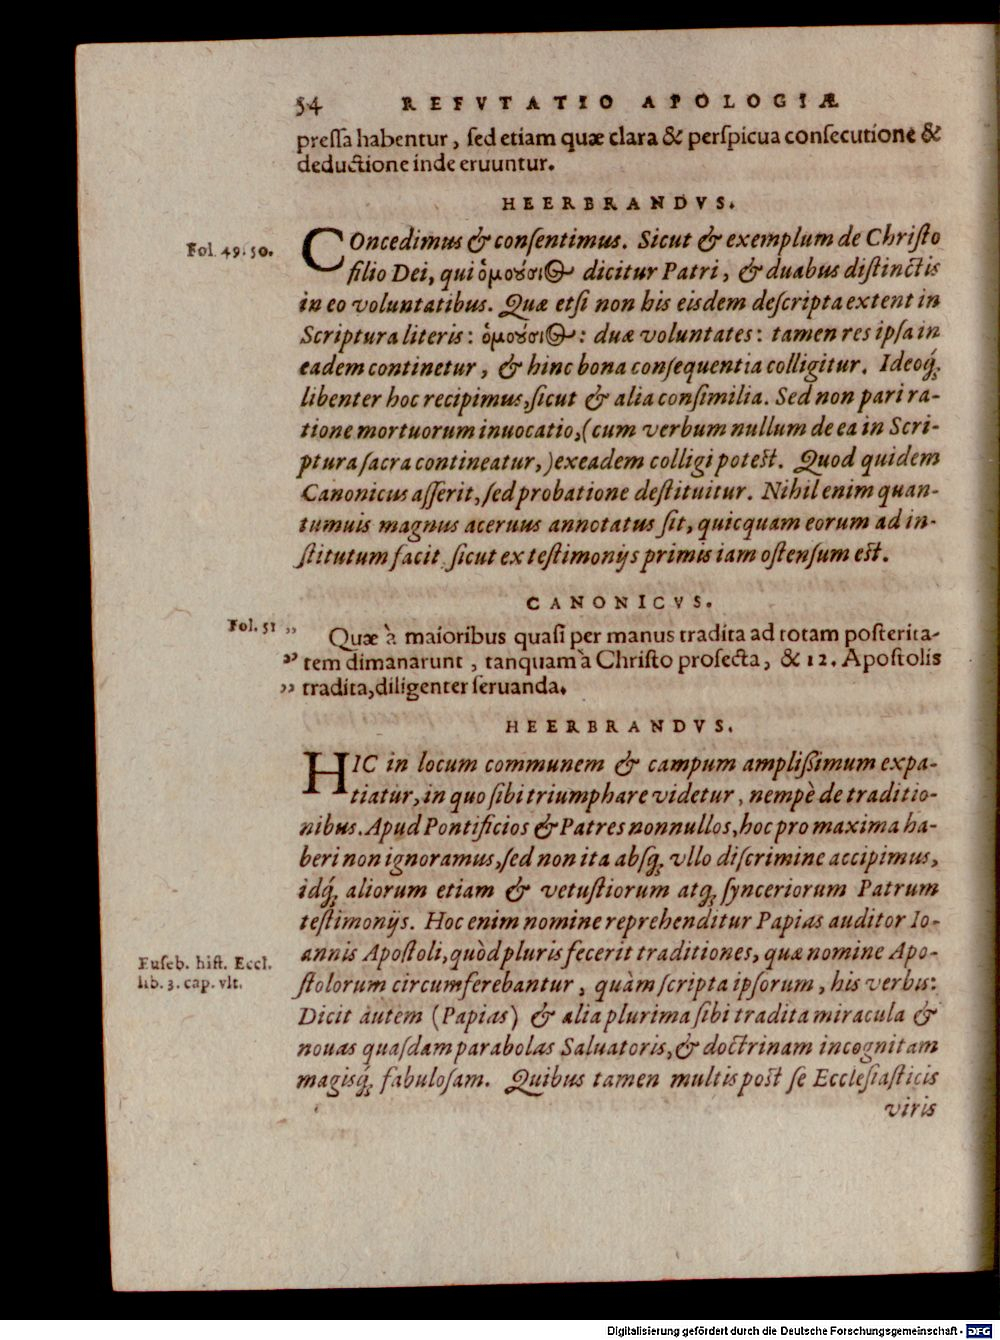 54 REFVTATIO APOLOGIÆ
pressa habentur, sed etiam quæ clara & perspicua consecutione &
deductione inde eruuntur.
HEERBRANDVS.
Fol. 49. 50.
COncedimus & consentimus. Sicut & exemplum de Christo
filio Dei, qui ὁμοούσι⊙ dicitur Patri, & duabus distinctis
in eo voluntatibus. Quæ etsi non his eisdem descripta extent in
Scriptura literis: ὁμοούσι⊙: duæ voluntates: tamen res ipsa in
eadem continetur, & hinc bona consequentia colligitur. Ideoq́;
libenter hoc recipimus, sicut & alia consimilia. Sed non pari ra-
tione mortuorum inuocatio, (cum verbum nullum de ea in Scri-
ptura sacra contineatur,) ex eadem colligi potest. Quod quidem
Canonicus asserit, sed probatione destituitur. Nihil enim quan-
tumuis magnus aceruus annotatus sit, quicquam eorum ad in-
stitutum facit sicut ex testimonijs primis iam ostensum est.
CANONICVS.
Fol. 51
„ Quæ à maioribus quasi per manus tradita ad totam posterita-
„ tem dimanarunt, tanquam à Christo profecta, & 12. Apostolis
„ tradita, diligenter seruanda.
HEERBRANDVS.
HIC in locum communem & campum amplißimum expa-
tiatur, in quo sibi triumphare videtur, nempè de traditio-
nibus. Apud Pontificios & Patres nonnullos, hoc pro maxima ha-
beri non ignoramus, sed non ita absq; vllo discrimine accipimus,
idq́; aliorum etiam & vetustiorum atq; synceriorum Patrum
testimonijs. Hoc enim nomine reprehenditur Papias auditor Io-
annis Apostoli, quòd pluris fecerit traditiones, quæ nomine Apo-
Euseb. hist. Eccl.
lib. 3. cap. vlt.
stolorum circumferebantur, quàm scripta ipsorum, his verbis:
Dicit autem (Papias) & alia plurima sibi tradita miracula &
nouas quasdam parabolas Saluatoris, & doctrinam incognitam
magisq́; fabulosam. Quibus tamen multis post se Ecclesiasticis
viris
Digitalisierung gefördert durch die Deutsche Forschungsgemeinschaft - DFG